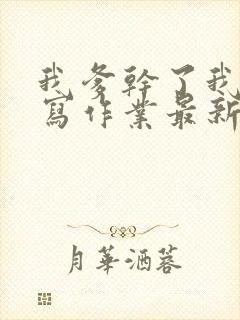 我爹幹了我
寫作業最新
月華酒蓉